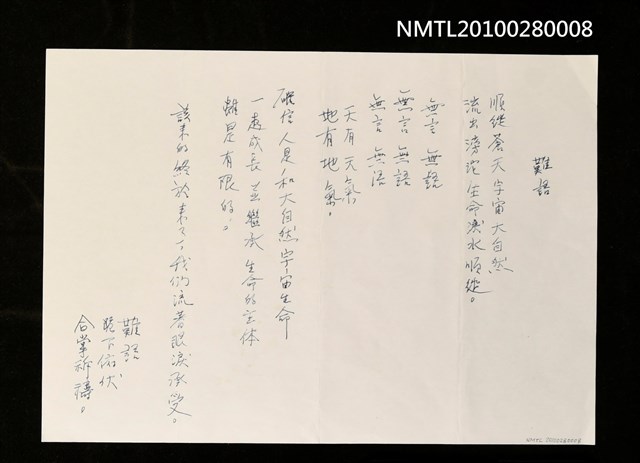 NMTL20100280008
難語
順從蒼天宇宙大自然
流出滂沱生命淚水順從。
無言 無語
無言 無語
無言 無語
天有天氣
地有地氣。
確信人是和大自然宇宙生命
一起成長 並繼承 生命的主体
雖是有限的。
該來的終於來了，我们流著眼淚承受。
難語
跪下俯伏
合掌祈禱。
NMTL 20100280008